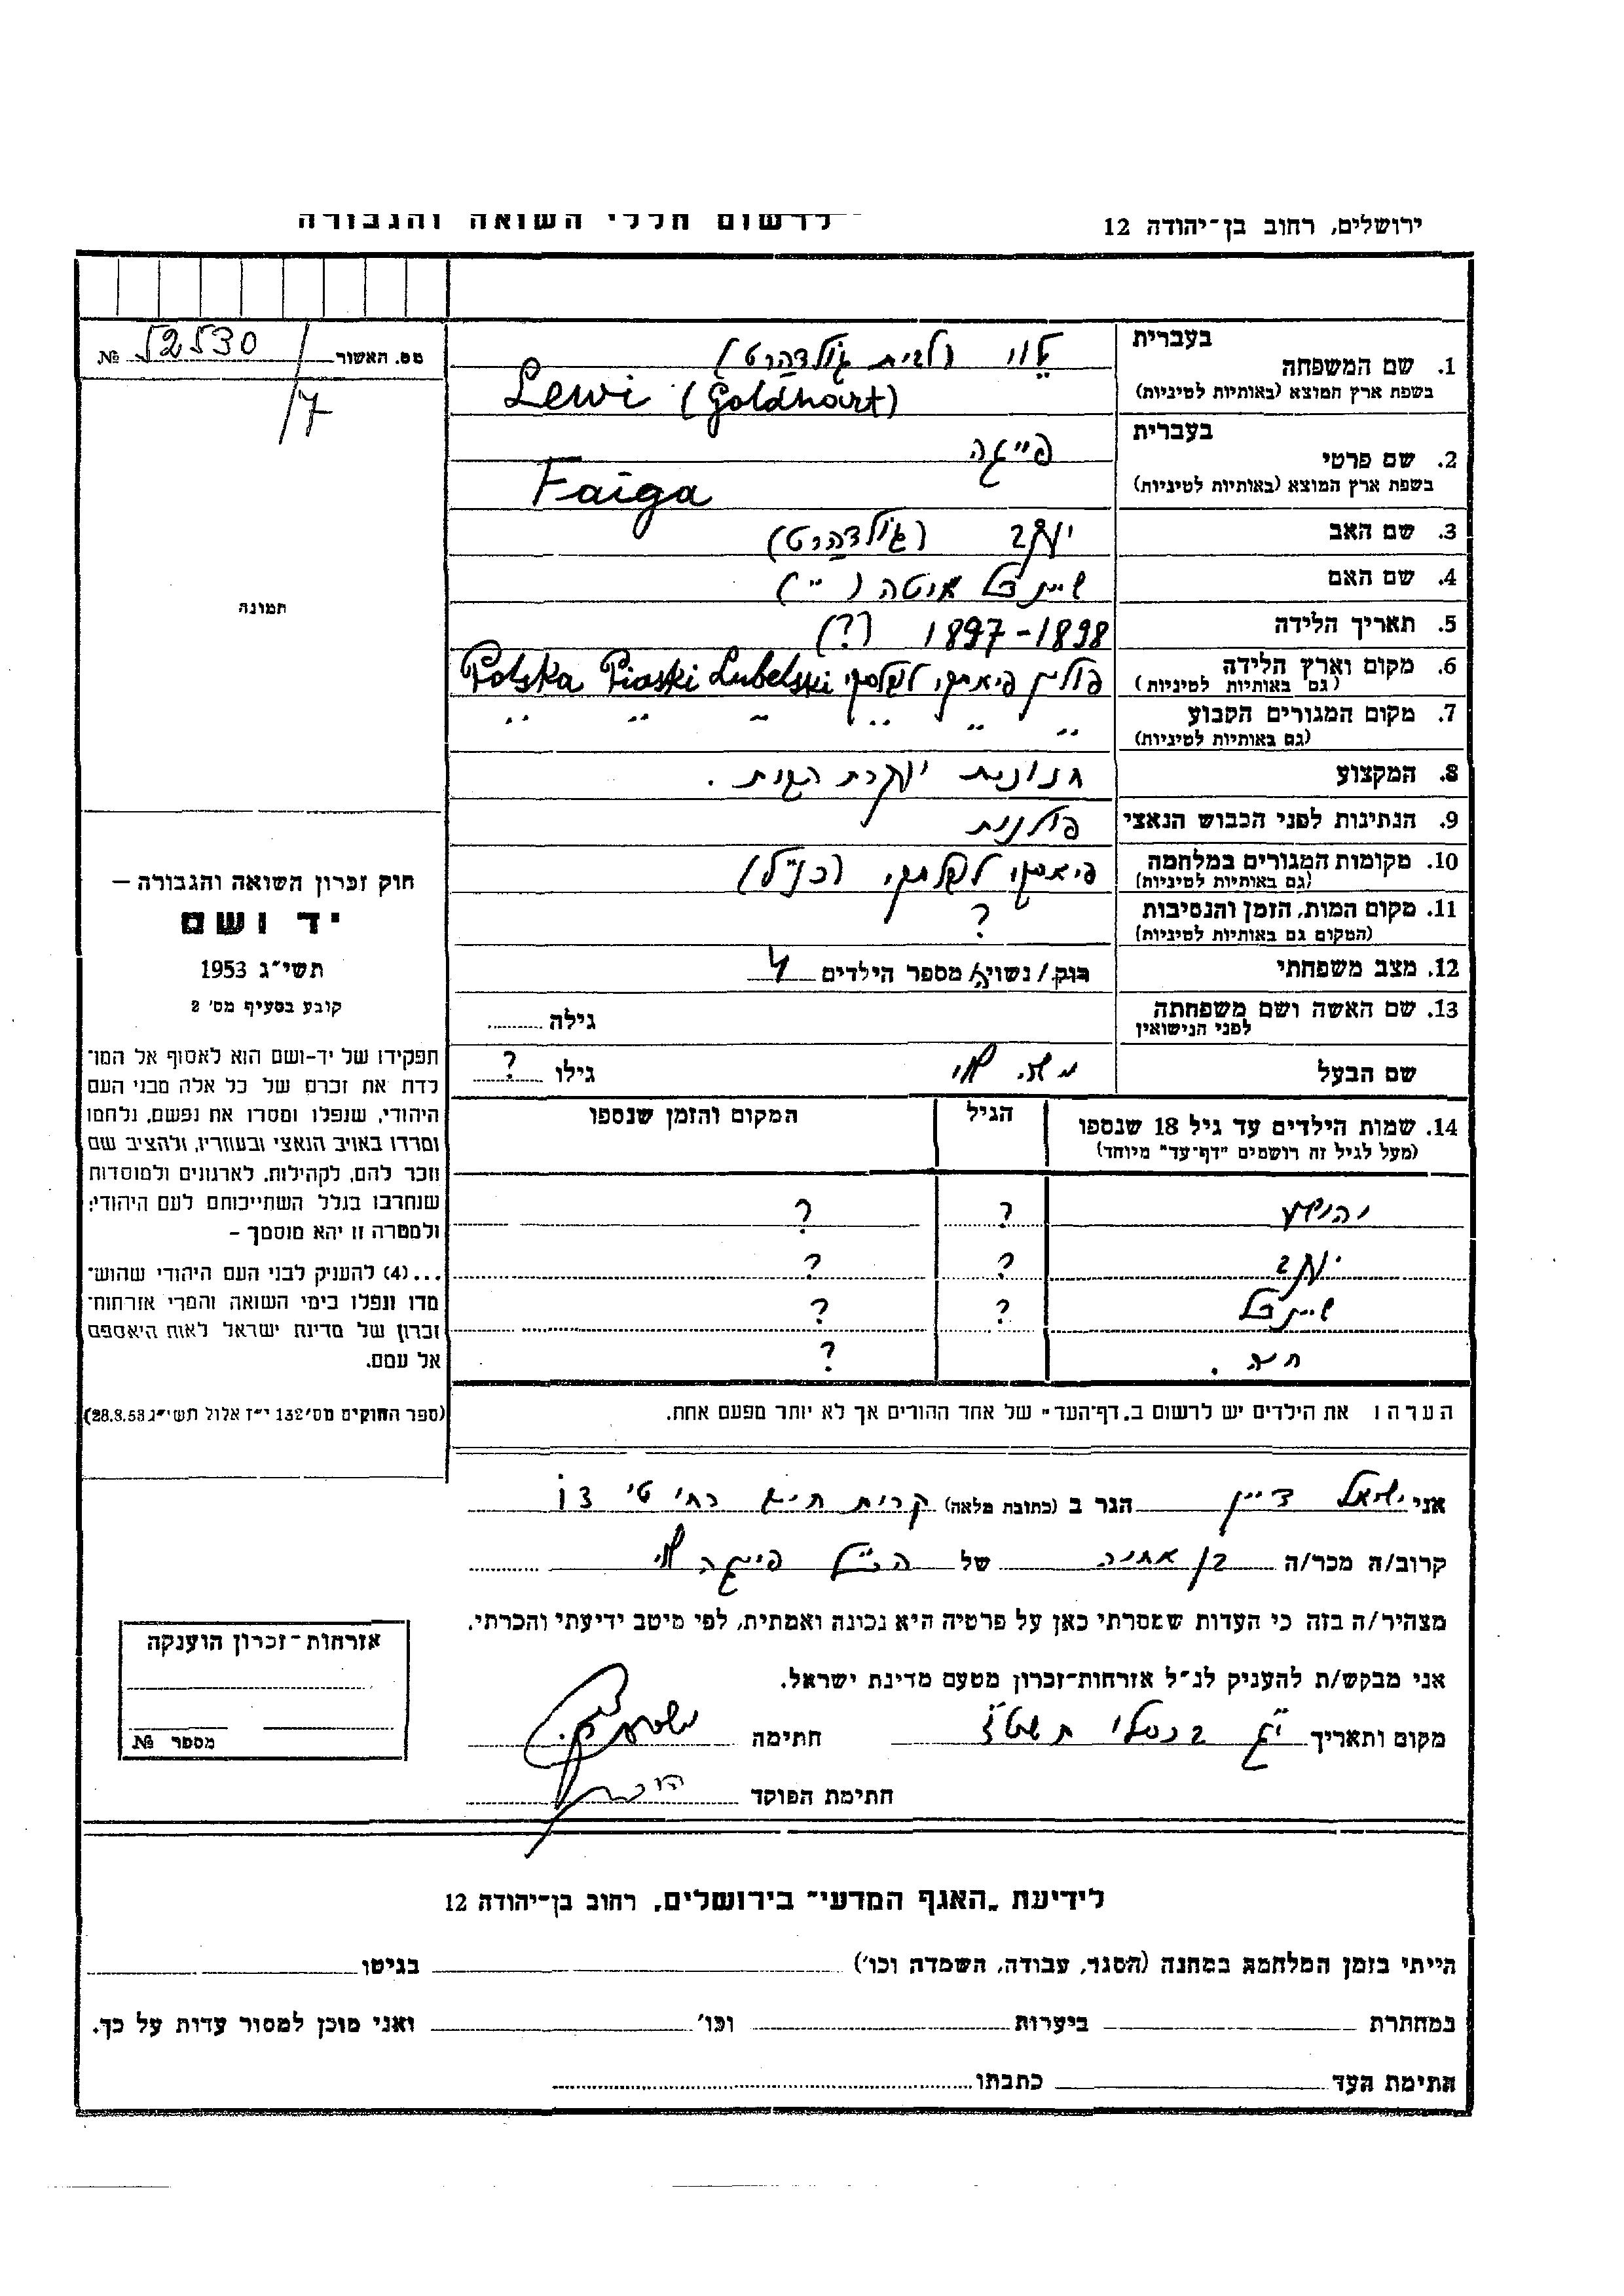 ירושלים, רחוב בן־יהודה 12
לרשום חללי השואה והגבורה
מס. האשור 52530 №
/7
תמונה
חוק זכרון השואה והגבורה —
יד ושם
תשי״ג 1953
קובע בסעיף מס' 2
תפקידו של יד-ושם הוא לאסוף אל המו־
לדת את זכרם של כל אלה מבני העם
היהודי, שנפלו ומסרו את נפשם, נלחמו
ומרדו באויב הנאצי ובעוזריו, ולהציב שם
וזכר להם, לקהילות, לארגונים ולמוסדות
שנחרבו בגלל השתייכותם לעם היהודי;
ולמטרה זו יהא מוסמך –
...(4) להעניק לבני העם היהודי שהוש־
מדו ונפלו בימי השואה והמרי אזרחות־
זכרון של מדינת ישראל לאות היאספם
אל עמם.
(ספר החוקים מס' 132 י״ז אלול תשי״ג 28.8.53)
בעברית
1. שם המשפחה לוי (לבית גולדהרט)
בשפת ארץ המוצא (באותיות לטיניות) Lewi (Goldhart)
בעברית
2. שם פרטי פייגה
בשפת ארץ המוצא (באותיות לטיניות) Faiga
3. שם האב יעקב (גולדהרט)
4. שם האם שיינדל איטה ( ״ )
5. תאריך הלידה 1897-1898 (?)
6. מקום וארץ הלידה פולין פיאסקי לובלסקי Polska Piaski Lubelski
(גם באותיות לטיניות)
7. מקום המגורים הקבוע ״ ״ ״ ״ ״ ״
(גם באותיות לטיניות)
8. המקצוע חנונית ועקרת הבית.
9. הנתינות לפני הכבוש הנאצי פולנית
10. מקומות המגורים במלחמה פיאסקי לובלסקי (כנ״ל)
(גם באותיות לטיניות)
11. מקום המות, הזמן והנסיבות ?
(המקום גם באותיות לטיניות)
12. מצב משפחתי רוק/נשוי/ה מספר הילדים 4
13. שם האשה ושם משפחתה גילה
לפני הנישואין
שם הבעל משה לוי גילו ?
14. שמות הילדים עד גיל 18 שנספו הגיל המקום והזמן שנספו
(מעל לגיל זה רושמים "דף־עד" מיוחד)
יהושע ? ?
יעקב ? ?
שיינדל ? ?
חיה. ?
הערה: את הילדים יש לרשום ב„דף־העד״ של אחד ההורים אך לא יותר מפעם אחת.
אני ישראל דיין הגר ב (כתובת מלאה) קרית חיים רח' ט'
קרוב/ה מכר/ה בן אחיה של הנ״ל פייגה לוי
מצהיר/ה בזה כי העדות שמסרתי כאן על פרטיה היא נכונה ואמתית, לפי מיטב ידיעתי והכרתי.
אני מבקש/ת להעניק לנ״ל אזרחות־זכרון מטעם מדינת ישראל.
מקום ותאריך י״ג בכסלו תשט״ז חתימה
חתימת הפוקד
אזרחות־זכרון הוענקה
מספר №
לידיעת „האגף המדעי״ בירושלים, רחוב בן־יהודה 12
הייתי בזמן המלחמה במחנה (הסגר, עבודה, השמדה וכו') בגיטו
במחתרת ביערות וכו' ואני מוכן למסור עדות על כך.
חתימת העד כתבתו